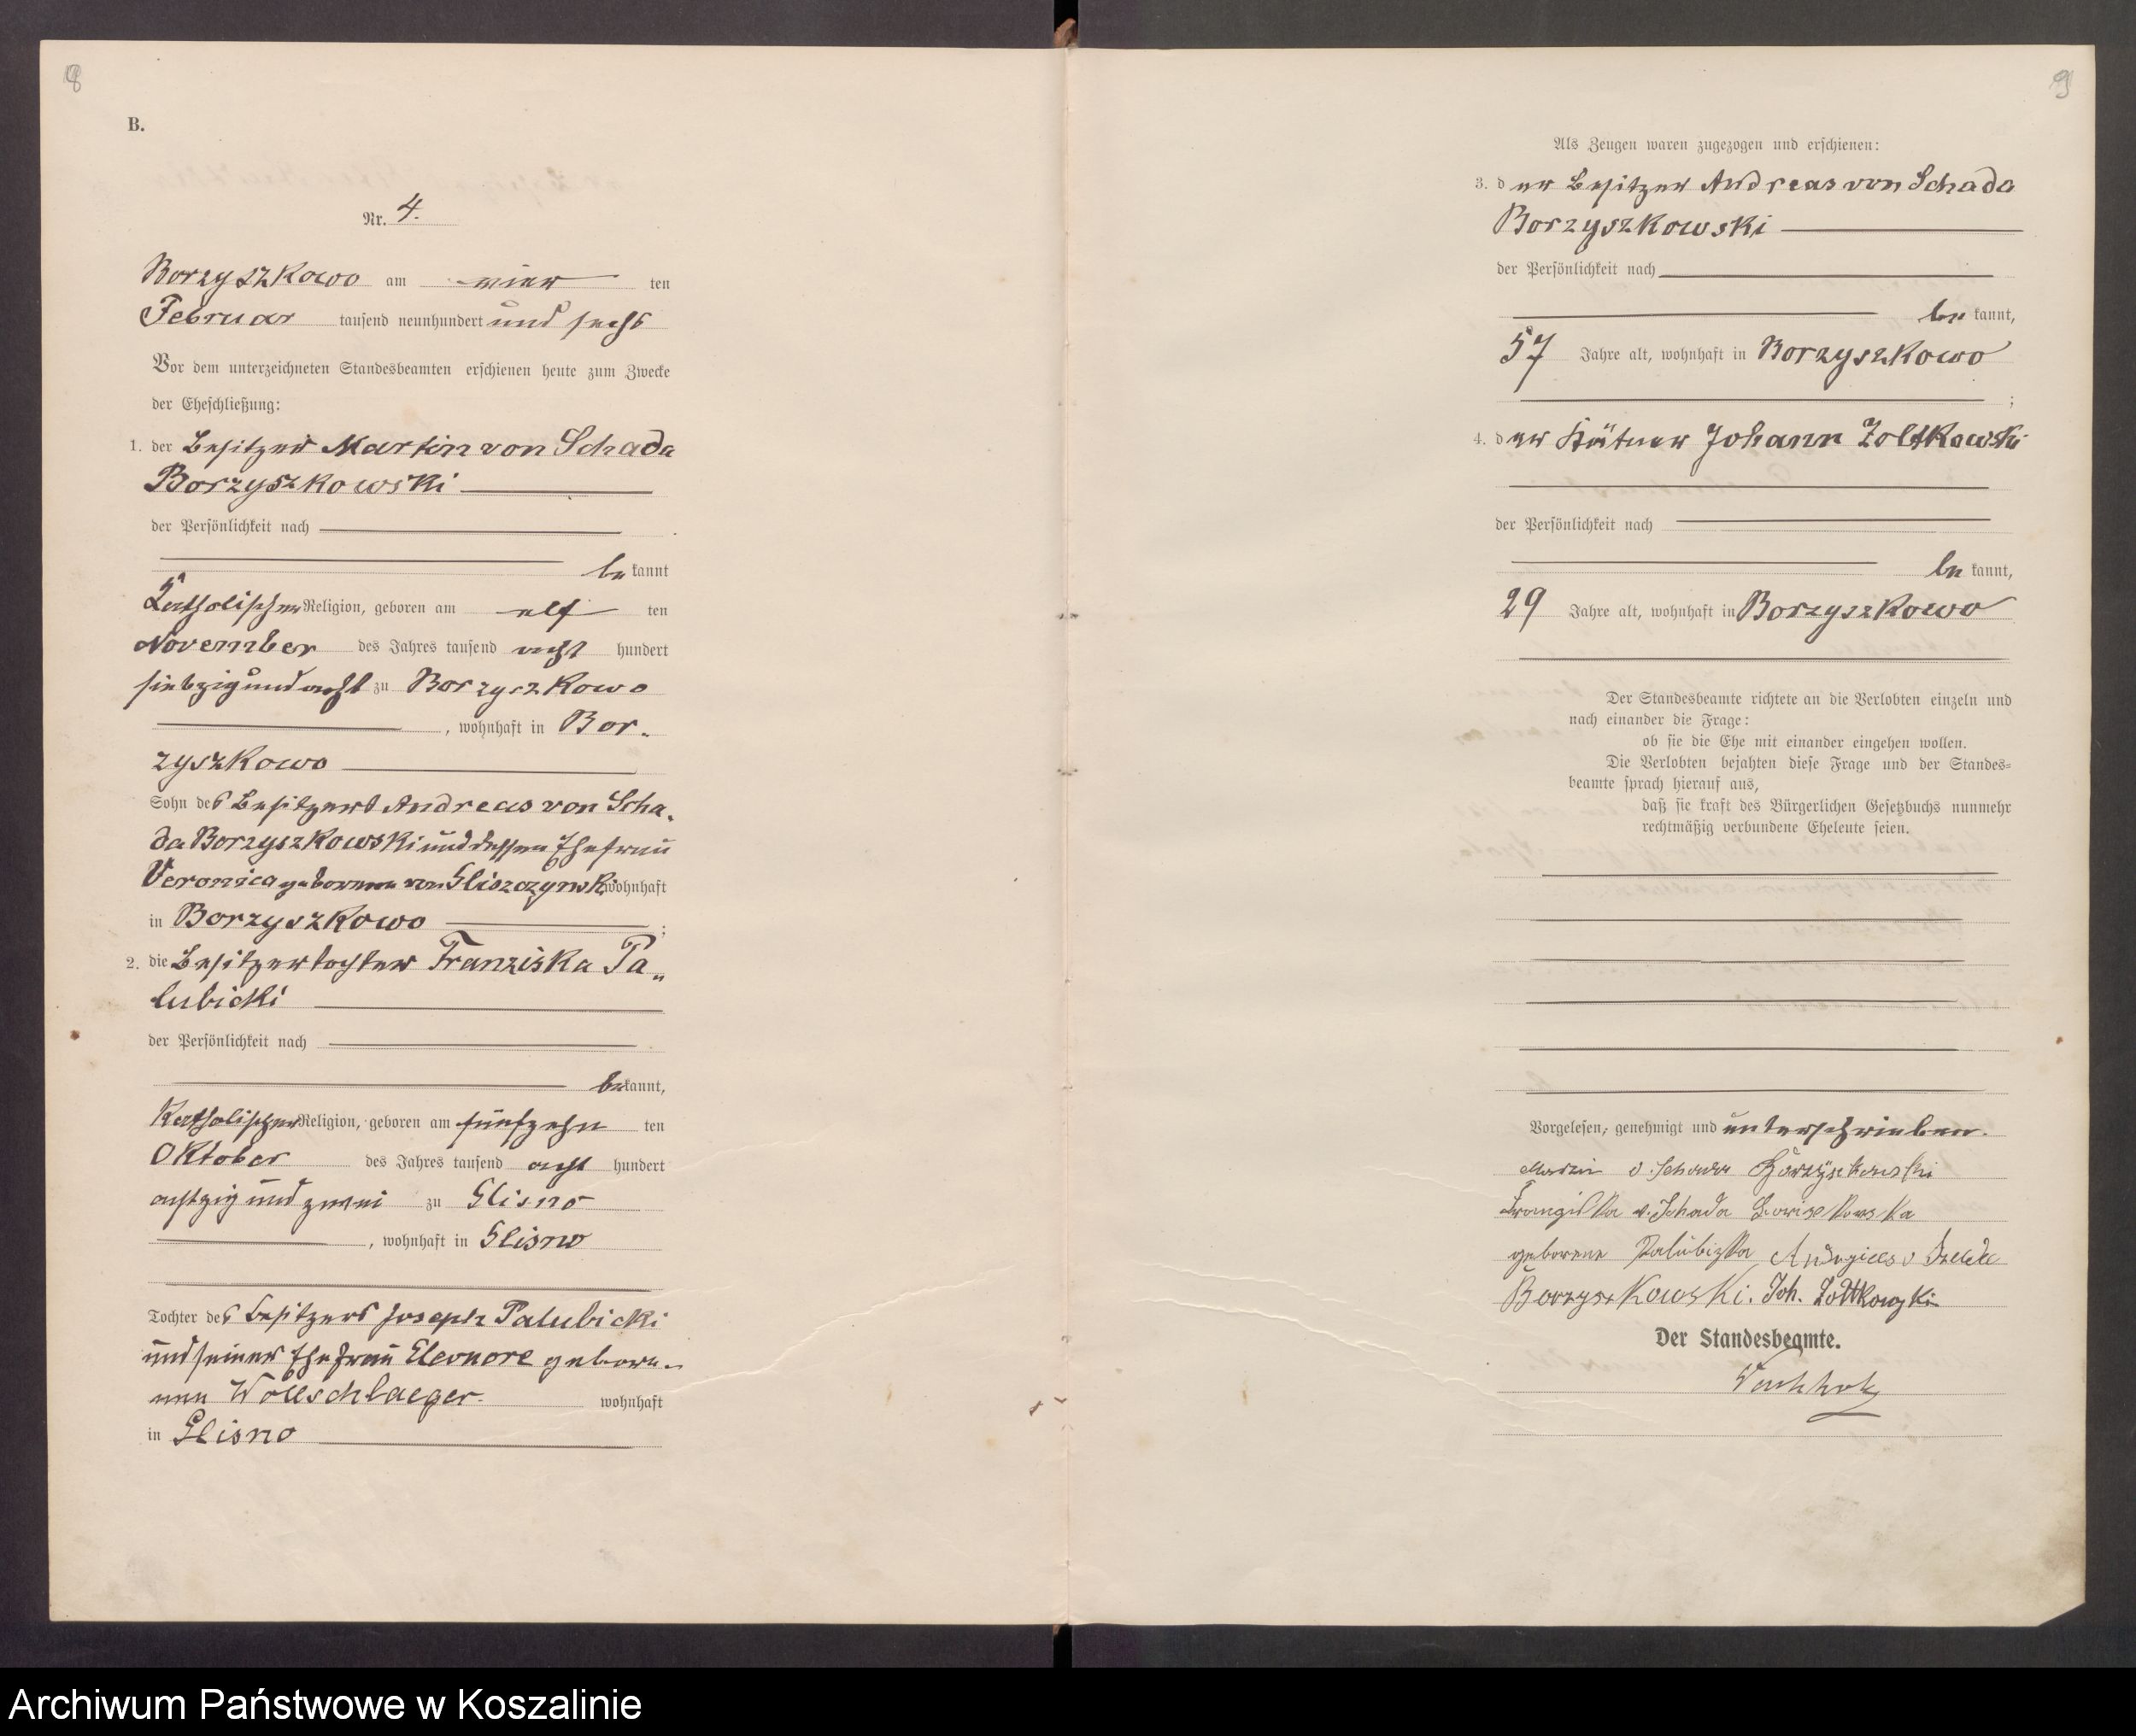 8
B.
Nr. 4.
Borzyszkowo am vier ten
Februar tausend neunhundert und sechs
Vor dem unterzeichneten Standesbeamten erschienen heute zum Zwecke
der Eheschließung:
1. der Besitzer Martin von Schada
Borzyszkowski
der Persönlichkeit nach
be kannt
Katholischer Religion, geboren am elf ten
November des Jahres tausend acht hundert
siebzig und acht zu Borzyszkowo
, wohnhaft in Bor-
zyszkowo
Sohn des Besitzers Andreas von Scha-
da Borzyszkowski und dessen Ehefrau
Veronica geborenen von Gliszczynski wohnhaft
in Borzyszkowo ;
2. die Besitzertochter Franziska Pa-
lubicki
der Persönlichkeit nach
bekannt,
Katholischer Religion, geboren am fünfzehn ten
Oktober des Jahres tausend acht hundert
achtzig und zwei zu Glisno
, wohnhaft in Glisno
Tochter des Besitzers Joseph Palubicki
und seiner Ehefrau Eleonore gebore-
nen Wollschlaeger wohnhaft
in Glisno
9
Als Zeugen waren zugezogen und erschienen:
3. der Besitzer Andreas von Schada
Borzyszkowski
der Persönlichkeit nach
be kannt,
57 Jahre alt, wohnhaft in Borzyszkowo
;
4. der Kätner Johann Zoltkowski
der Persönlichkeit nach
be kannt,
29 Jahre alt, wohnhaft in Borzyszkowo
Der Standesbeamte richtete an die Verlobten einzeln und
nach einander die Frage:
ob sie die Ehe mit einander eingehen wollen.
Die Verlobten bejahten diese Frage und der Standes-
beamte sprach hierauf aus,
daß sie kraft des Bürgerlichen Gesetzbuchs nunmehr
rechtmäßig verbundene Eheleute seien.
Vorgelesen, genehmigt und unterschrieben.
Martin v. Schada Borzyszkowski
Franziska v. Schada
geborene Palubizka
Borzyszkowski. Joh. Zoltkowski
Der Standesbeamte.
Archiwum Państwowe w Koszalinie